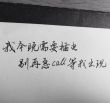 我今晚需要插电
别再意call等我出现